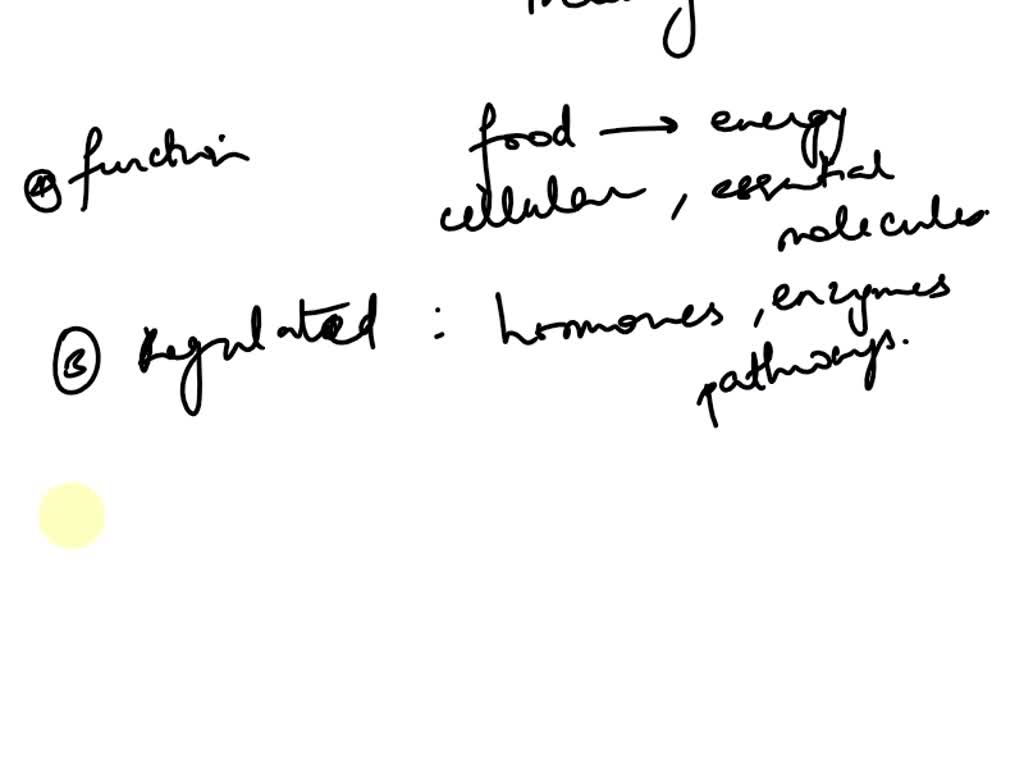 Ⓐ function food → energy
cellular, essential
molecules.
Ⓑ Regulated : hormones, enzymes
pathways.